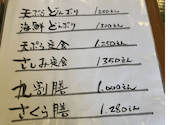 天ぷらどんぶり 1,200えん
海鮮どんぶり 1,300えん
天ぷら定食 1,250えん
さしみ定食 1,350えん
九割膳 1,000えん
さくら膳 1,280えん